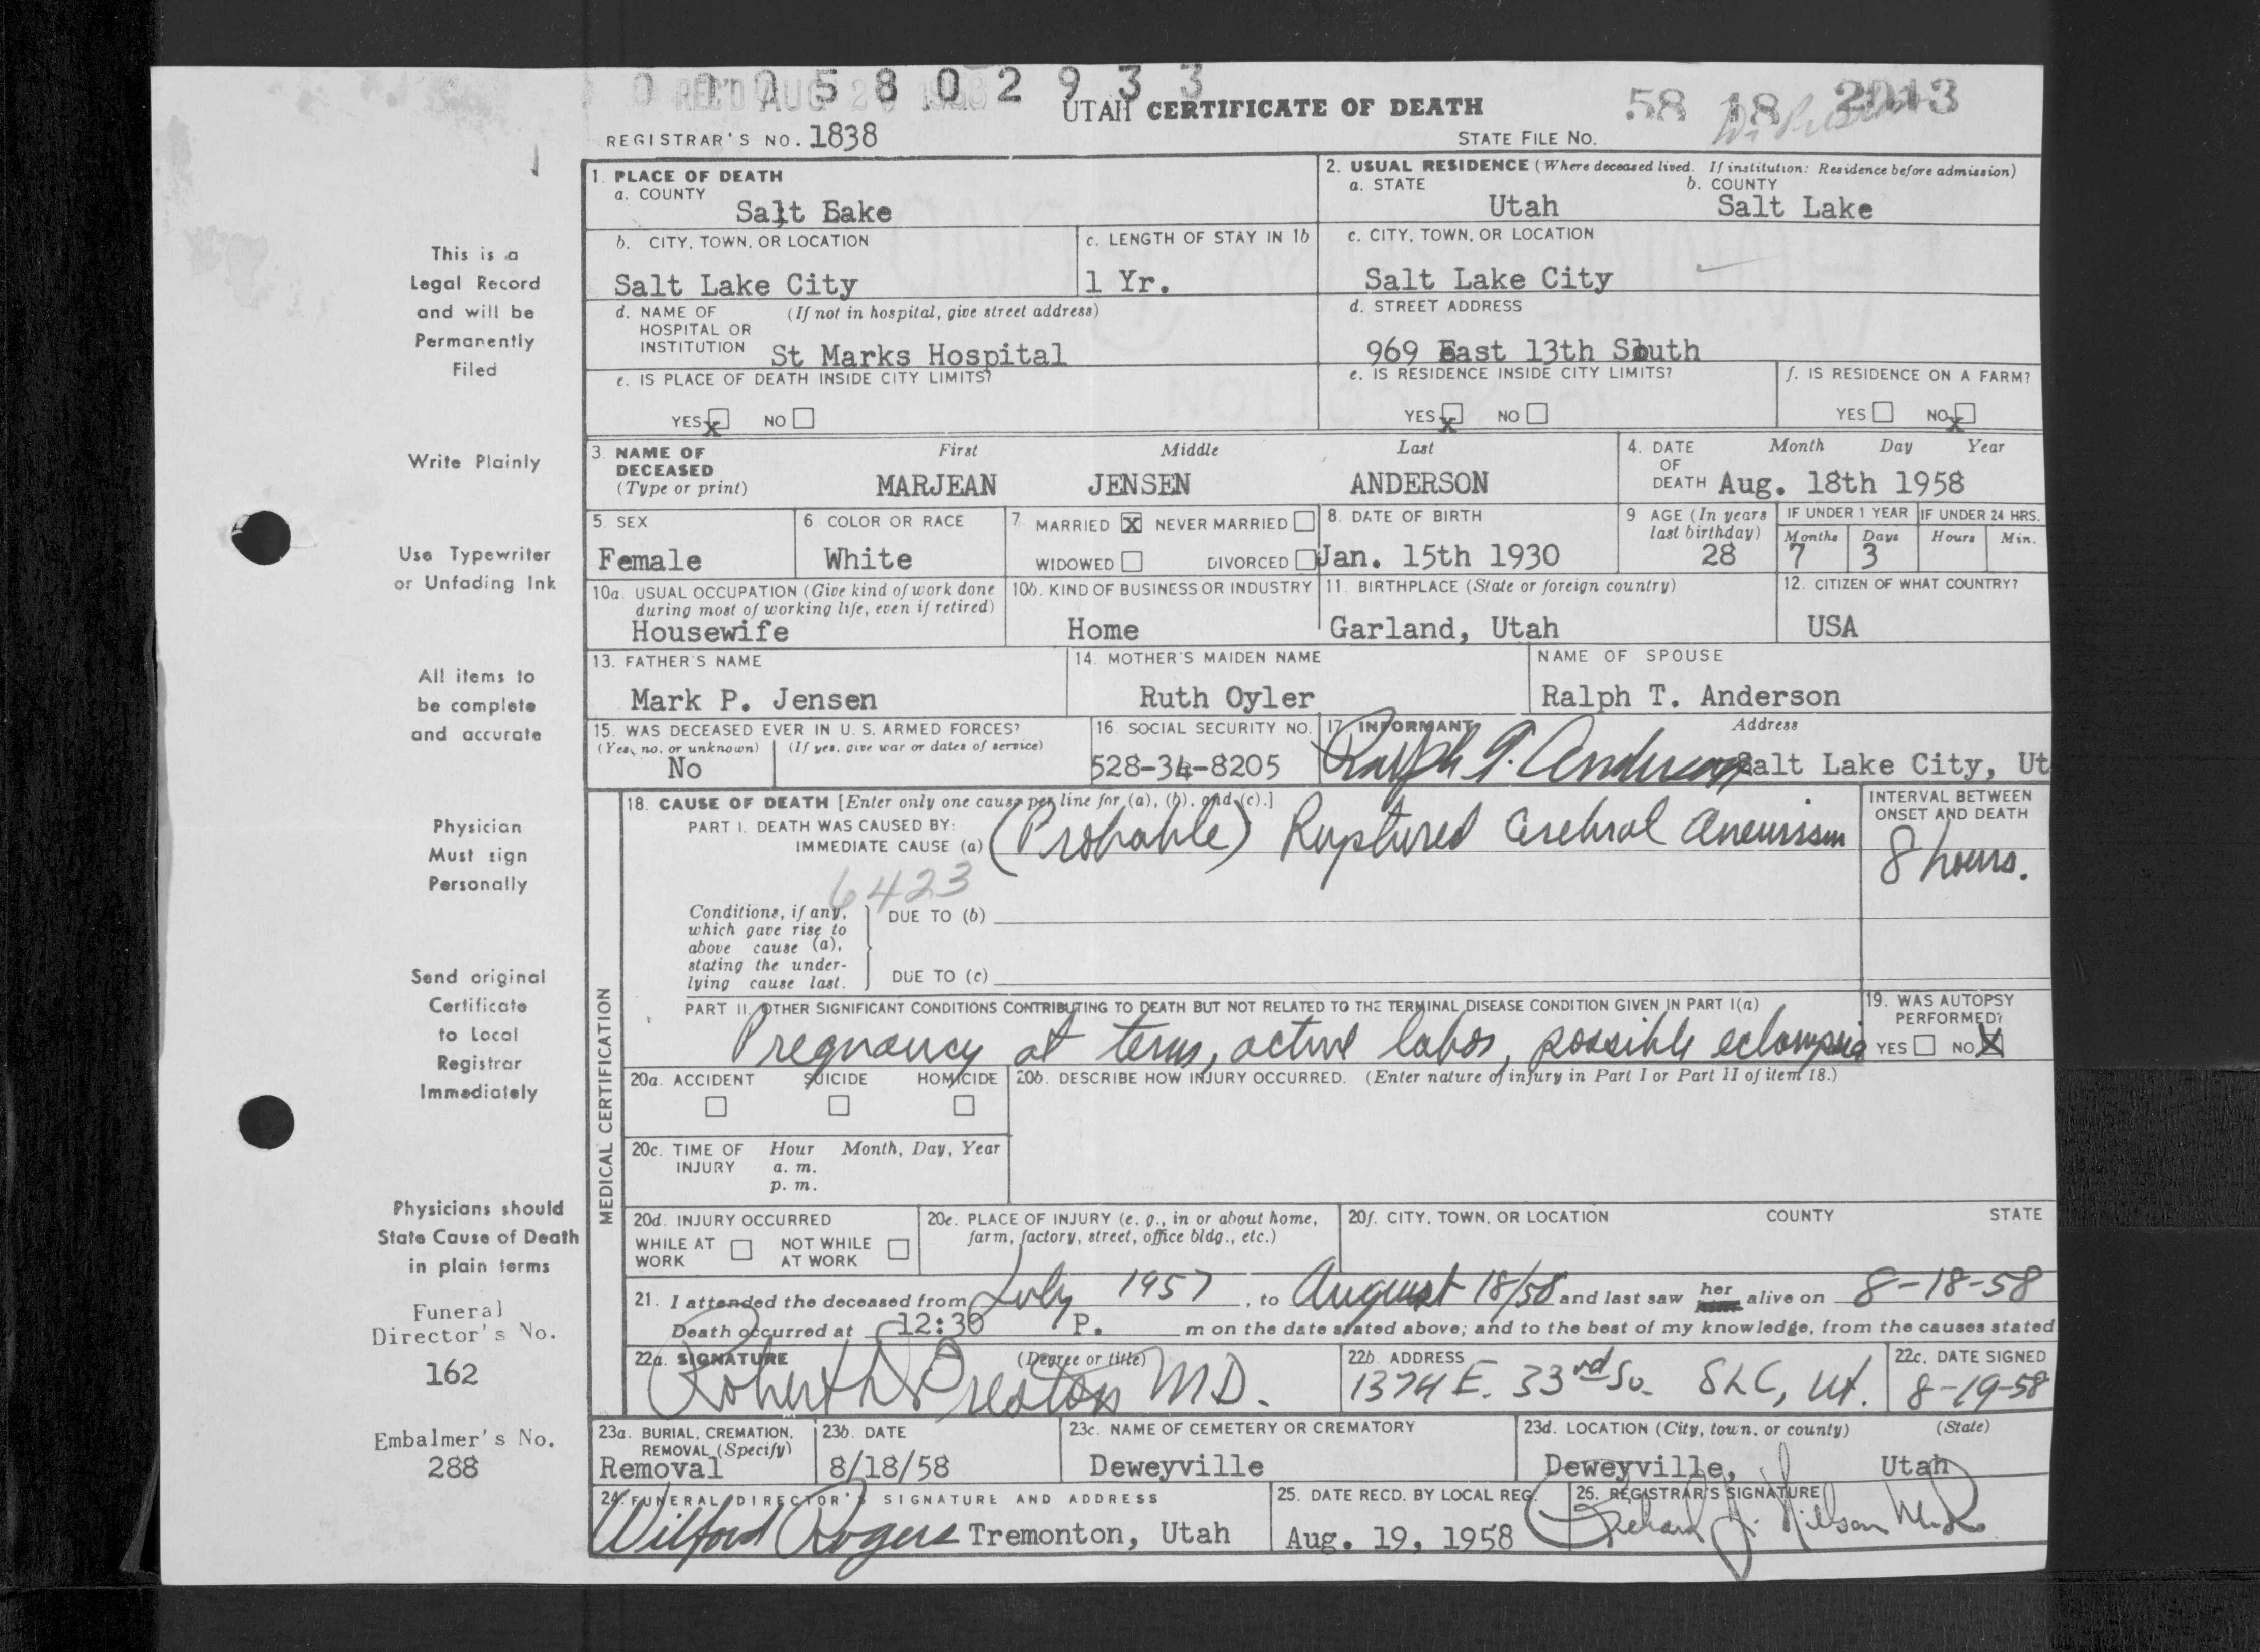 0 0 0 5 8 0 2 9 3 3
REC'D AUG 2
UTAH CERTIFICATE OF DEATH
58 18 2013
REGISTRAR'S NO. 1838
STATE FILE NO.
1. PLACE OF DEATH
a. COUNTY
Salt Lake
2. USUAL RESIDENCE (Where deceased lived. If institution: Residence before admission)
a. STATE b. COUNTY
Utah Salt Lake
b. CITY, TOWN, OR LOCATION
Salt Lake City
c. LENGTH OF STAY IN 1b
1 Yr.
c. CITY, TOWN, OR LOCATION
Salt Lake City
d. NAME OF HOSPITAL OR INSTITUTION (If not in hospital, give street address)
St Marks Hospital
d. STREET ADDRESS
969 East 13th South
e. IS PLACE OF DEATH INSIDE CITY LIMITS?
YES X NO
e. IS RESIDENCE INSIDE CITY LIMITS?
YES X NO
f. IS RESIDENCE ON A FARM?
YES NO X
3. NAME OF DECEASED (Type or print)
First Middle Last
MARJEAN JENSEN ANDERSON
4. DATE OF DEATH Month Day Year
Aug. 18th 1958
5. SEX
Female
6. COLOR OR RACE
White
7. MARRIED X NEVER MARRIED
WIDOWED DIVORCED
8. DATE OF BIRTH
Jan. 15th 1930
9 AGE (In years last birthday)
28
IF UNDER 1 YEAR IF UNDER 24 HRS.
Months Days Hours Min.
7 3
10a. USUAL OCCUPATION (Give kind of work done during most of working life, even if retired)
Housewife
10b. KIND OF BUSINESS OR INDUSTRY
Home
11. BIRTHPLACE (State or foreign country)
Garland, Utah
12. CITIZEN OF WHAT COUNTRY?
USA
13. FATHER'S NAME
Mark P. Jensen
14. MOTHER'S MAIDEN NAME
Ruth Oyler
NAME OF SPOUSE
Ralph T. Anderson
15. WAS DECEASED EVER IN U. S. ARMED FORCES?
(Yes, no, or unknown) (If yes, give war or dates of service)
No
16. SOCIAL SECURITY NO.
528-34-8205
17. INFORMANT Address
Ralph T. Anderson Salt Lake City, Ut
MEDICAL CERTIFICATION
18. CAUSE OF DEATH [Enter only one cause per line for (a), (b), and (c).]
PART I. DEATH WAS CAUSED BY:
IMMEDIATE CAUSE (a) (Probable) Ruptured Cerebral Aneurism
INTERVAL BETWEEN ONSET AND DEATH
8 hours.
6423
Conditions, if any, which gave rise to above cause (a), stating the underlying cause last.
DUE TO (b)
DUE TO (c)
PART II. OTHER SIGNIFICANT CONDITIONS CONTRIBUTING TO DEATH BUT NOT RELATED TO THE TERMINAL DISEASE CONDITION GIVEN IN PART I(a)
Pregnancy at term, active labor, possible eclampsia
19. WAS AUTOPSY PERFORMED?
YES NO X
20a. ACCIDENT SUICIDE HOMICIDE
20b. DESCRIBE HOW INJURY OCCURRED. (Enter nature of injury in Part I or Part II of item 18.)
20c. TIME OF INJURY Hour Month, Day, Year
a. m.
p. m.
20d. INJURY OCCURRED
WHILE AT WORK NOT WHILE AT WORK
20e. PLACE OF INJURY (e. g., in or about home, farm, factory, street, office bldg., etc.)
20f. CITY, TOWN, OR LOCATION COUNTY STATE
21. I attended the deceased from July 1957, to August 18/58 and last saw her alive on 8-18-58
Death occurred at 12:30 P. m on the date stated above; and to the best of my knowledge, from the causes stated
22a. SIGNATURE (Degree or title)
Robert W Preston MD.
22b. ADDRESS
1374 E. 33rd So. SLC, Ut.
22c. DATE SIGNED
8-19-58
23a. BURIAL, CREMATION, REMOVAL (Specify)
Removal
23b. DATE
8/18/58
23c. NAME OF CEMETERY OR CREMATORY
Deweyville
23d. LOCATION (City, town, or county) (State)
Deweyville, Utah
24. FUNERAL DIRECTOR'S SIGNATURE AND ADDRESS
Wilford Rogers Tremonton, Utah
25. DATE RECD. BY LOCAL REG.
Aug. 19, 1958
26. REGISTRAR'S SIGNATURE
Richard J. Nilson M.D.
This is a
Legal Record
and will be
Permanently
Filed
Write Plainly
Use Typewriter
or Unfading Ink
All items to
be complete
and accurate
Physician
Must sign
Personally
Send original
Certificate
to Local
Registrar
Immediately
Physicians should
State Cause of Death
in plain terms
Funeral
Director's No.
162
Embalmer's No.
288